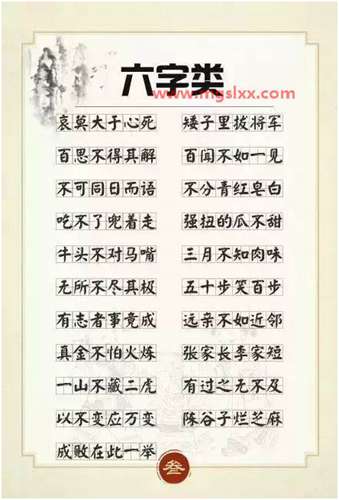 六字类
www.mgslxx.com
哀莫大于心死 矮子里拔将军
百思不得其解 百闻不如一见
不可同日而语 不分青红皂白
吃不了兜着走 强扭的瓜不甜
牛头不对马嘴 三月不知肉味
无所不尽其极 五十步笑百步
有志者事竟成 远亲不如近邻
真金不怕火炼 张家长李家短
一山不藏二虎 有过之无不及
以不变应万变 陈谷子烂芝麻
成败在此一举
叁